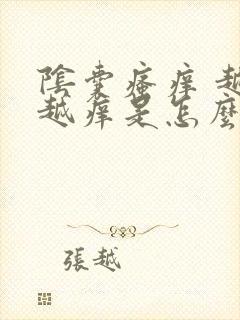 陰囊瘙癢越
越癢是怎麼
張越